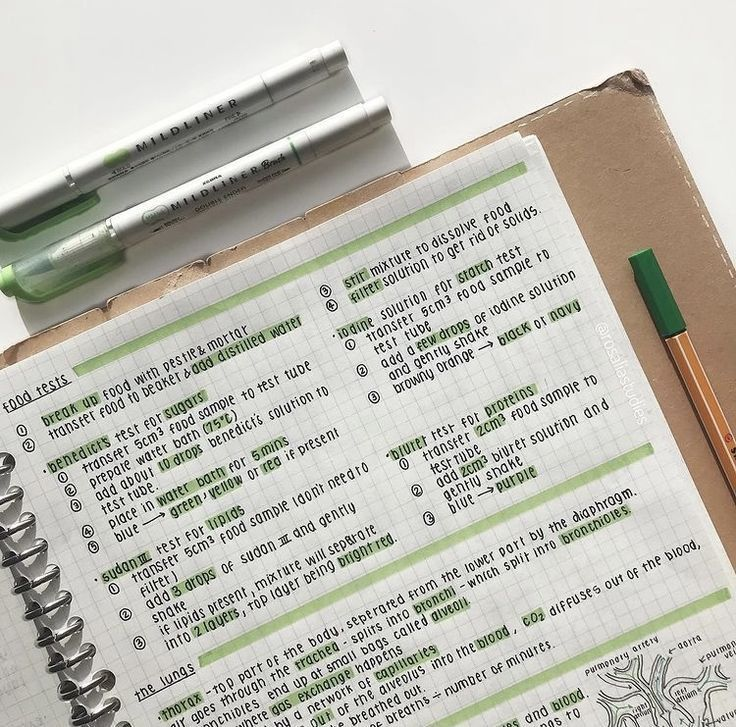 MILDLINER
ZEBRA
MILDLINER Brush
DOUBLE ENDED
food tests
① break up food with pestle & mortar
② transfer food to beaker & add distilled water
③ stir mixture to dissolve food
④ filter solution to get rid of solids.
· benedict's test for sugars
① transfer 5cm3 food sample to test tube
② prepare water bath (75°C)
③ add about 10 drops benedict's solution to
test tube
④ place in water bath for 5 mins
⑤ blue → green, yellow or red if present
· sudan III test for lipids
① transfer 5cm3 food sample (don't need to
filter)
② add 3 drops of sudan III and gently
shake
③ if lipids present, mixture will seperate
into 2 layers, top layer being bright red.
· iodine solution for starch test
① transfer 5cm3 food sample to
test tube
② add a few drops of iodine solution
and gently shake
③ browny orange → black or navy
· biuret test for proteins
① transfer 2cm3 food sample to
test tube
② add 2cm3 biuret solution and
gently shake
③ blue → purple
@rosaliastudies
the lungs
· thorax - top part of the body, seperated from the lower part by the diaphragm.
air goes through the trachea - splits into bronchi - which split into bronchioles.
bronchioles end up at small bags called alveoli
where gas exchange happens
by a network of capillaries
out of the alveolus into the blood, CO2 diffuses out of the blood,
be breathed out.
breaths ÷ number of minutes.
and blood.
pulmonary artery
aorta
left
atrium